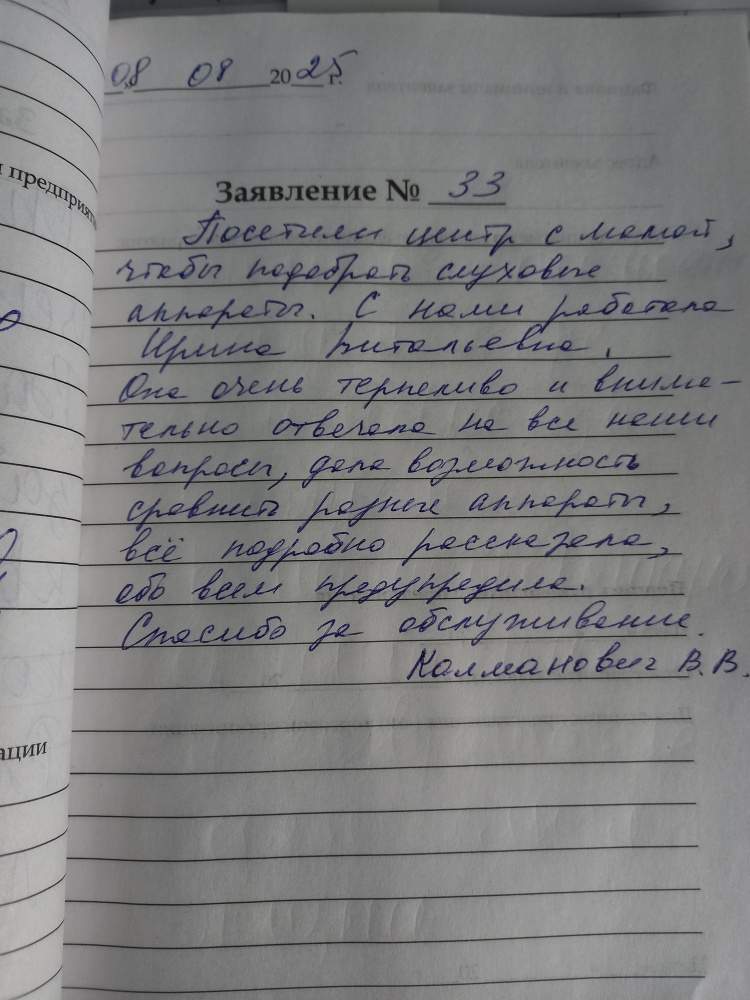 08 08 2025 г.
и предприят
Заявление № 33
Посетили центр с мамой,
чтобы подобрать слуховые
аппараты. С нами работала
Ирина Витальевна.
Она очень терпеливо и внима-
тельно отвечала на все наши
вопросы, дала возможность
сравнить разные аппараты,
всё подробно рассказала,
обо всем предупредила.
Спасибо за обслуживание.
Калманович В.В.
ации